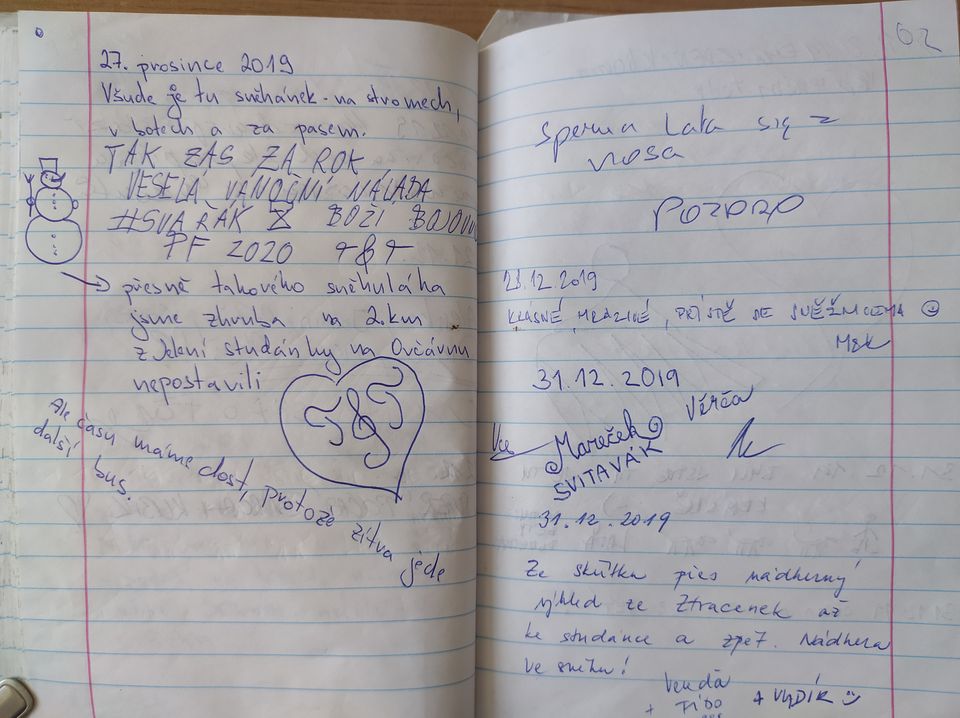 27. prosince 2019
Všude je tu sněhánek - na stromech,
v botech a za pasem.
TAK ZAS ZA ROK
VESELÁ VÁNOČNÍ NÁLADA
#SVAŘÁK Z BOŽÍ BOJOVN
PF 2020 T&T
přesně takového sněhuláka
jsme zhruba na 2.km
z Jelení studánky na Ovčárnu
nepostavili
T&T
Ale času máme dost, protože zítra jede
další bus.
62
sperma Lata się z
nosa
POZDRO
28.12.2019
KRÁSNĚ, MRAZIVĚ, PŘÍŠTĚ SE SNĚŽNICEMA ☺
M&K
31.12.2019
Věrča
Mareček
SVITAVÁK
31.12.2019
Ze skútku přes nádherný
výhled ze Ztracenek až
ke studánce a zpět. Nádhera
ve sněhu!
Venda
+ FIDO + VLDÍK